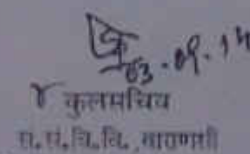 03.09.14
कुलसचिव
सं.सं.वि.वि., वाराणसी